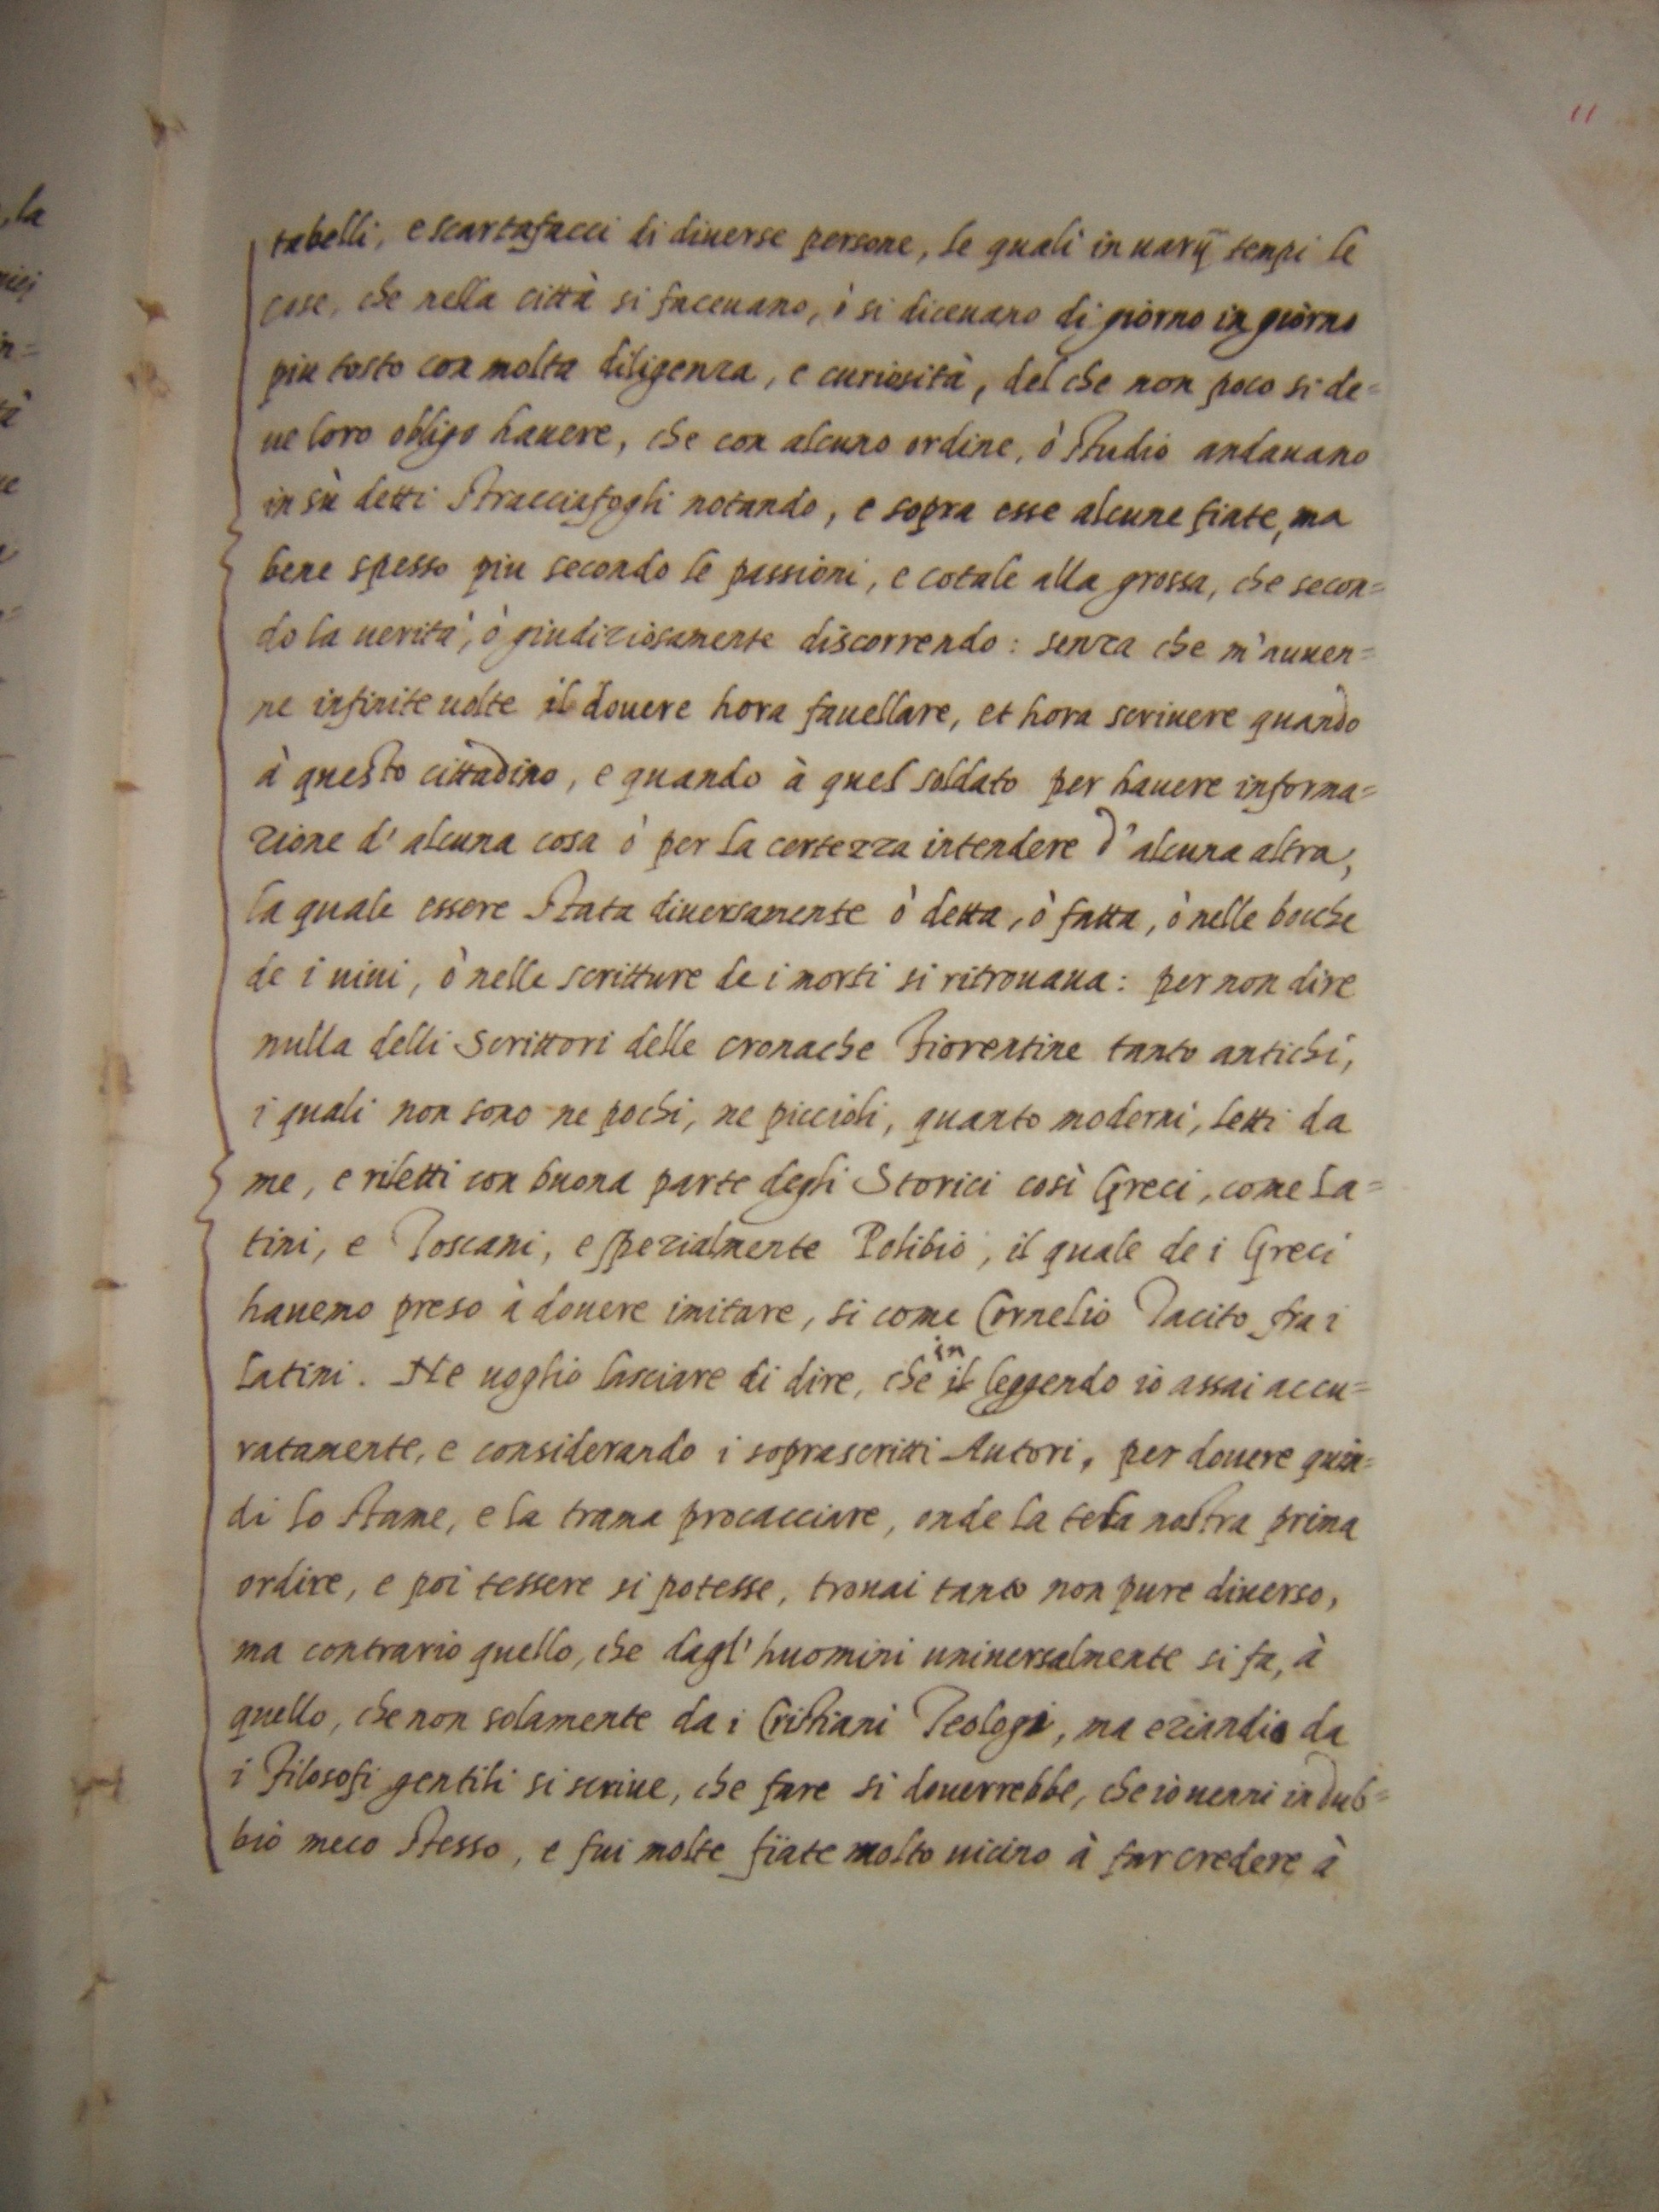 11
,la
tabelli, e scartafacci di diuerse persone, le quali in uarij tempi le
cose, che nella città si faceuano, ò si diceuano di giorno in giorno
piu tosto con molta diligenza, e curiosità, del che non poco si de=
ue loro obligo hauere, che con alcuno ordine, ò studio andauano
in sù detti stracciafogli notando, e sopra esse alcune fiate, ma
bene spesso piu secondo le passioni, e cotale alla grossa, che secon=
do la uerità, ò giudiziosamente discorrendo: senza che m'auuen=
ne infinite uolte il douere hora fauellare, et hora scriuere quando
à questo cittadino, e quando à quel soldato per hauere informa=
zione d'alcuna cosa ò per la certezza intendere d'alcuna altra,
la quale essere stata diuersamente ò detta, ò fatta, ò nelle bocche
de i uiui, ò nelle scritture de i morti si ritrouaua: per non dire
nulla delli Scrittori delle cronache Fiorentine tanto antichi,
i quali non sono ne pochi, ne piccioli, quanto moderni, letti da
me, e riletti con buona parte degli Storici così Greci, come La=
tini, e Toscani, e spezialmente Polibio, il quale de i Greci
hauemo preso à douere imitare, si come Cornelio Tacito fra i
Latini. Ne uoglio lasciare di dire, che il in leggendo io assai accu=
ratamente, e considerando i soprascritti Autori, per douere quin=
di lo stame, e la trama procacciare, onde la tela nostra prima
ordire, e poi tessere si potesse, trouai tanto non pure diuerso,
ma contrario quello, che dagl'huomini uniuersalmente si fa, à
quello, che non solamente da i Cristiani Teologi, ma eziandio da
i Filosofi gentili si scriue, che fare si douerrebbe, che io uenni in dub=
bio meco stesso, e fui molte fiate molto uicino à far credere à